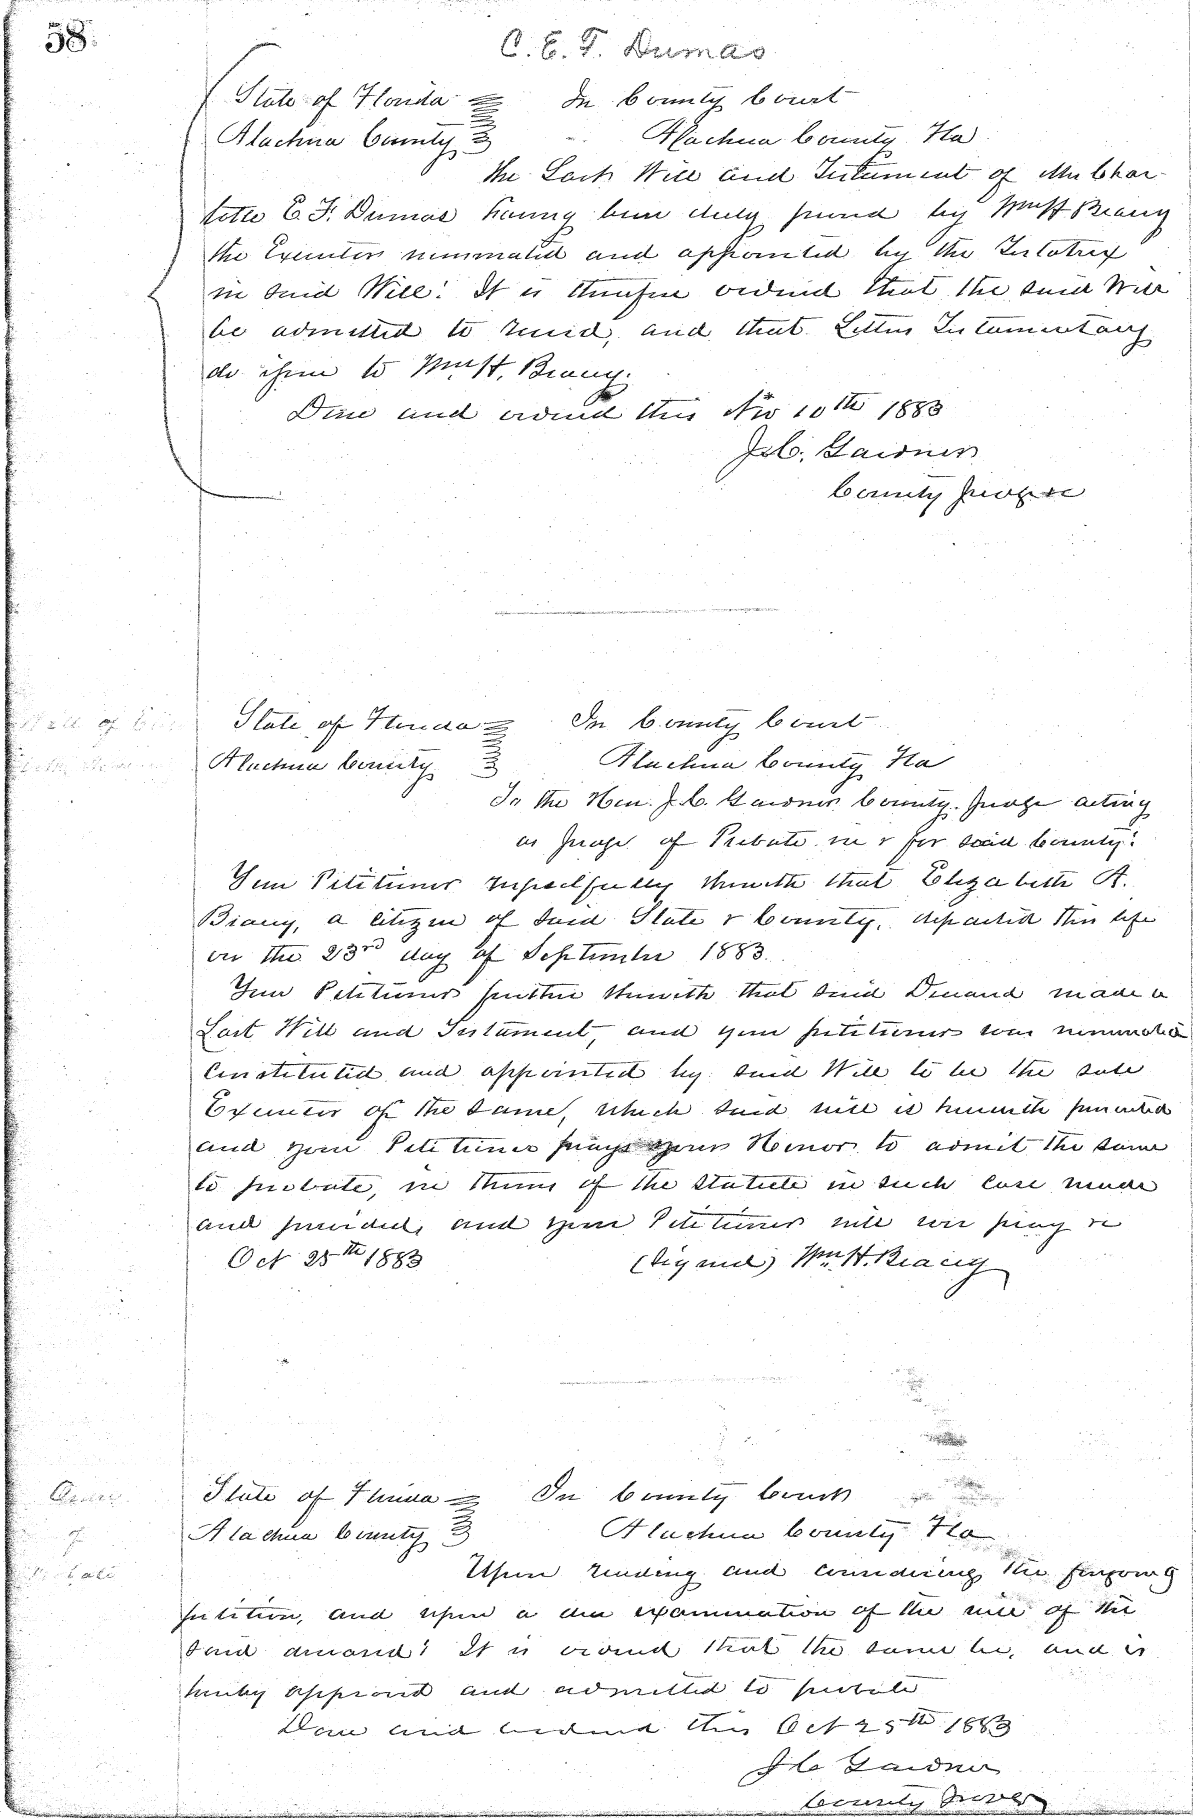 58.
C. E. F. Dumas
State of Florida In County Court
Alachua County Alachua County Fla
The Last Will and Testament of Mrs Char-
lotte E. F. Dumas having been duly proved by Wm H Bracey
the Executor nominated and appointed by the Testatrix
in said Will: It is therefore ordered that the said Will
be admitted to record, and that Letters Testamentary
do issue to Wm H. Bracey.
Done and ordered this Nov 10th 1883
J. C. Gardner
County Judge &c
State of Florida In County Court
Alachua County Alachua County Fla
To the Hon. J. C. Gardner County Judge acting
as Judge of Probate in & for said County:
Your Petitioner respectfully showeth that Elizabeth A.
Bracey, a citizen of said State & County, departed this life
on the 23rd day of September 1883.
Your Petitioner further showeth that said Deceased made a
Last Will and Testament, and your petitioner was nominated
Constituted and appointed by said Will to be the sole
Executor of the same, which said will is herewith presented
and your Petitioner prays your Honor to admit the same
to probate, in terms of the statute in such case made
and provided, and your Petitioner will ever pray &c
Oct 25th 1883 (Signed) Wm H. Bracey
Order State of Florida In County Court
of Alachua County Alachua County Fla
Upon reading and considering the foregoing
petition, and upon a due examination of the will of the
said deceased: It is ordered that the same be, and is
hereby approved and admitted to probate
Done and ordered this Oct 25th 1883
J C Gardner
County Judge